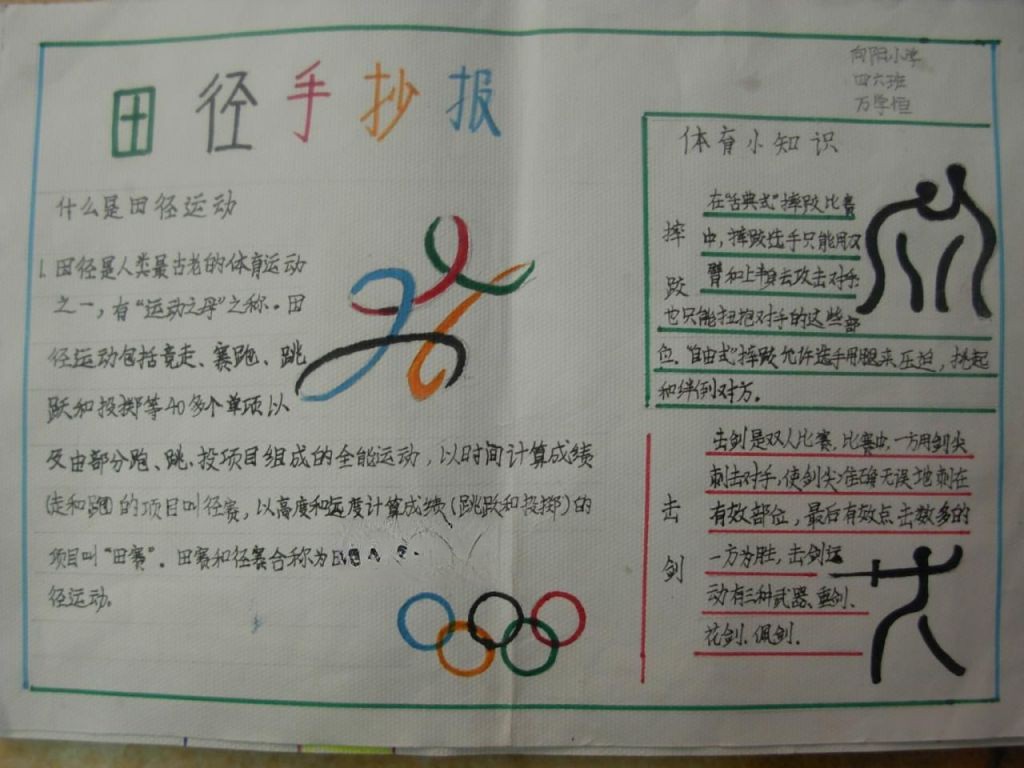 田径手抄报
向阳小学
四六班
万学恒
什么是田径运动
1.田径是人类最古老的体育运动
之一，有“运动之母”之称。田
径运动包括竞走、赛跑、跳
跃和投掷等40多个单项以
及由部分跑、跳、投项目组成的全能运动，以时间计算成绩
(走和跑)的项目叫径赛，以高度和远度计算成绩(跳跃和投掷)的
项目叫“田赛”。田赛和径赛合称为
径运动。
体育小知识
摔跤
在“古典式”摔跤比赛
中，摔跤选手只能用双
臂和上半身去攻击对手
也只能扭抱对手的这些部
位、“自由式”摔跤允许选手用腿来压迫，挑起
和绊倒对方。
击剑
击剑是双人比赛，比赛中，一方用剑尖
刺击对手，使剑尖准确无误地刺在
有效部位，最后有效点击数多的
一方为胜，击剑运
动有三种武器、重剑、
花剑、佩剑.